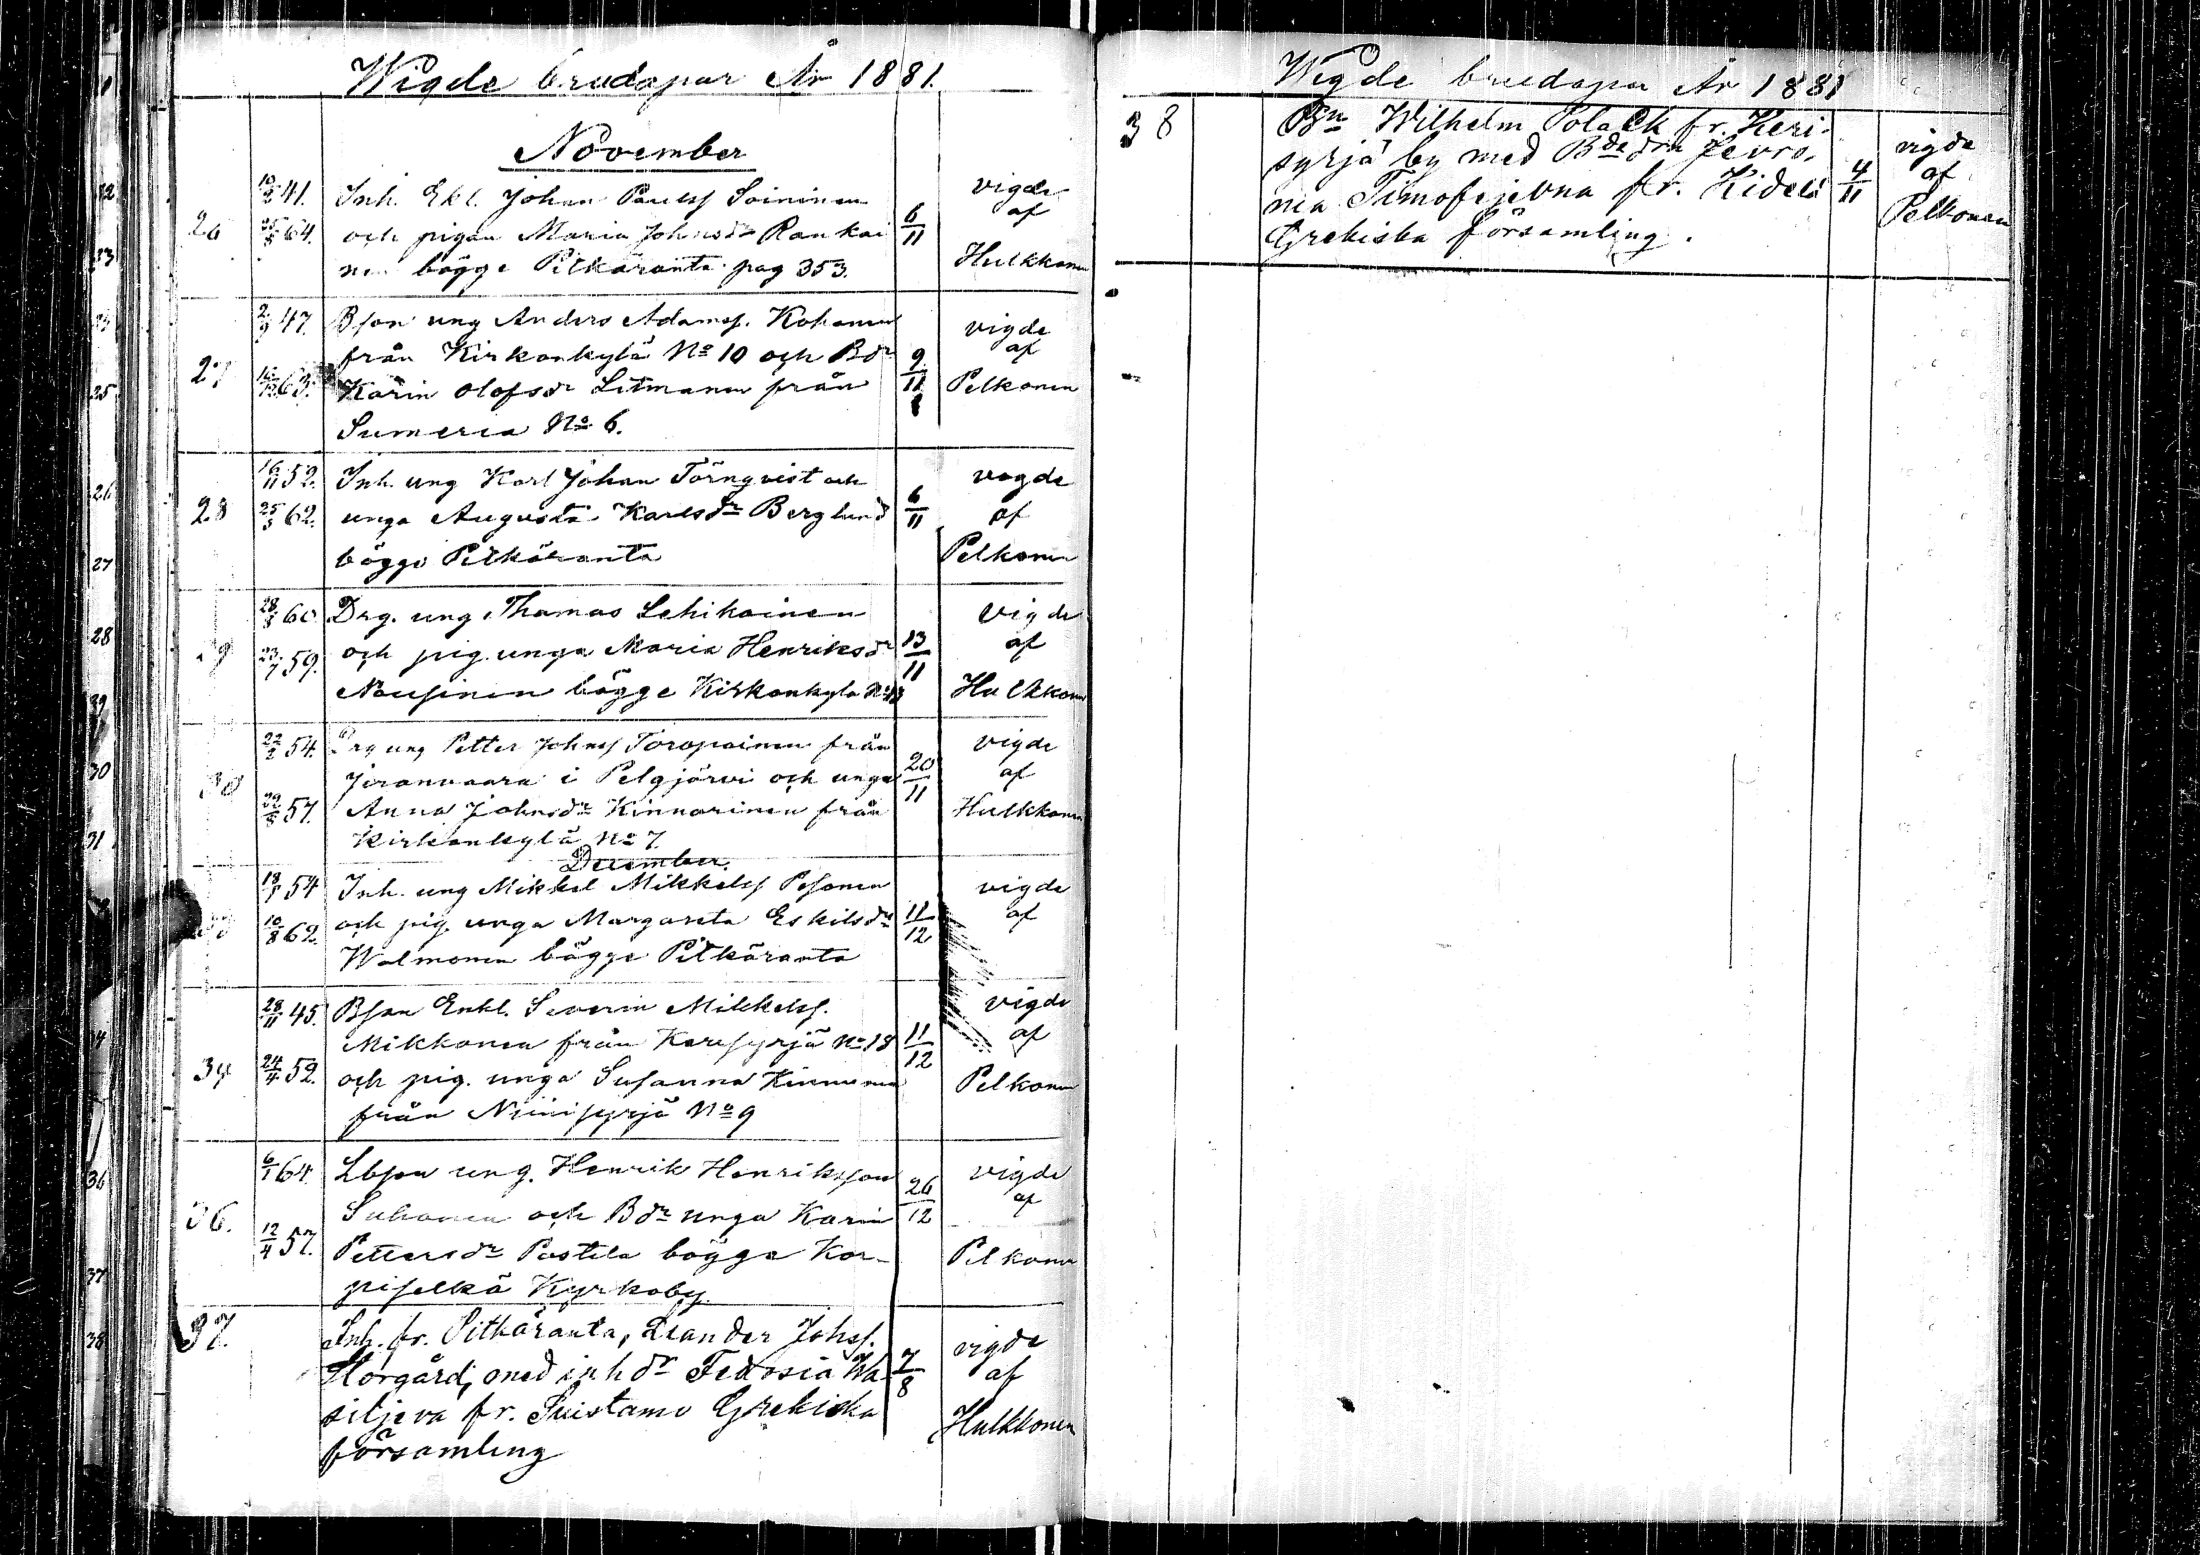 Wigde brudapar År 1881.
November
26
10/2 41. Inh. Ekl. Johan Paulss Soininen
25/5 64. och pigan Maria Johnsdr Rankai
nen bägge Pitkäranta pag 353.
6/11
vigde
af
Hulkkonen
27
2/9 47. Bson ung Anders Adamss. Kohonen
från Kirkonkylä No 10 och Bdr
63. Karin Olofsdr Litmanen från
Sumeria No 6.
9/11
vigde
af
Pelkonen
28
16/11 52. Inh. ung Karl Johan Törnqvist och
25/5 62. unga Augusta Karlsdr Berglund
bägge Pitkäranta
6/11
vigde
af
Pelkonen
29
28/8 60 Drg. ung Thomas Lehikoinen
23/7 59. och pig. unga Maria Henriksdr
Nousinen bägge Kirkonkylä No
13/11
vigde
af
Hulkkonen
30
22/2 54. Drg ung Petter Johnss Toropainen från
Jeronvaara i Pelgjärvi och unga
57. Anna Johnsdr Kinnarinen från
Kirkonkylä No 7.
20/11
vigde
af
Hulkkonen
December.
33
18/1 54 Inh. ung Mikkel Mikkelss Pesonen
10/8 62. och pig. unga Margareta Eskilsdr
Walmonen bägge Pitkäranta
11/12
vigde
af
34
28/11 45. Bson Enkl. Severin Mikkelss.
Mikkonen från Kerisyrjä No 18
24/4 52. och pig. unga Susanna Kinnunen
från Niinisyrjä No 9
11/12
vigde
af
Pelkonen
36.
6/1 64. Lbson ung. Henrik Henriksson
Suhonen och Bdr unga Karin
12/4 57. Pettersdr Postila bägge Kor-
piselkä Kyrkoby.
26/12
vigde
af
Pelkonen
37.
Inh. fr. Pitkäranta, Leander Johss.
Storgård, med inhdr Fedosia Wa
siljeva fr. Suistamo Grekiska
församling
7/8
vigde
af
Hulkkonen
Wigde brudapar År 1881
38
Bn Wilhelm Polack fr. Keri-
syrjä by med Bde dra Jevro.
nia Timofejevna fr. Kidelä
Grekiska församling.
4/11
vigde
af
Pelkonen